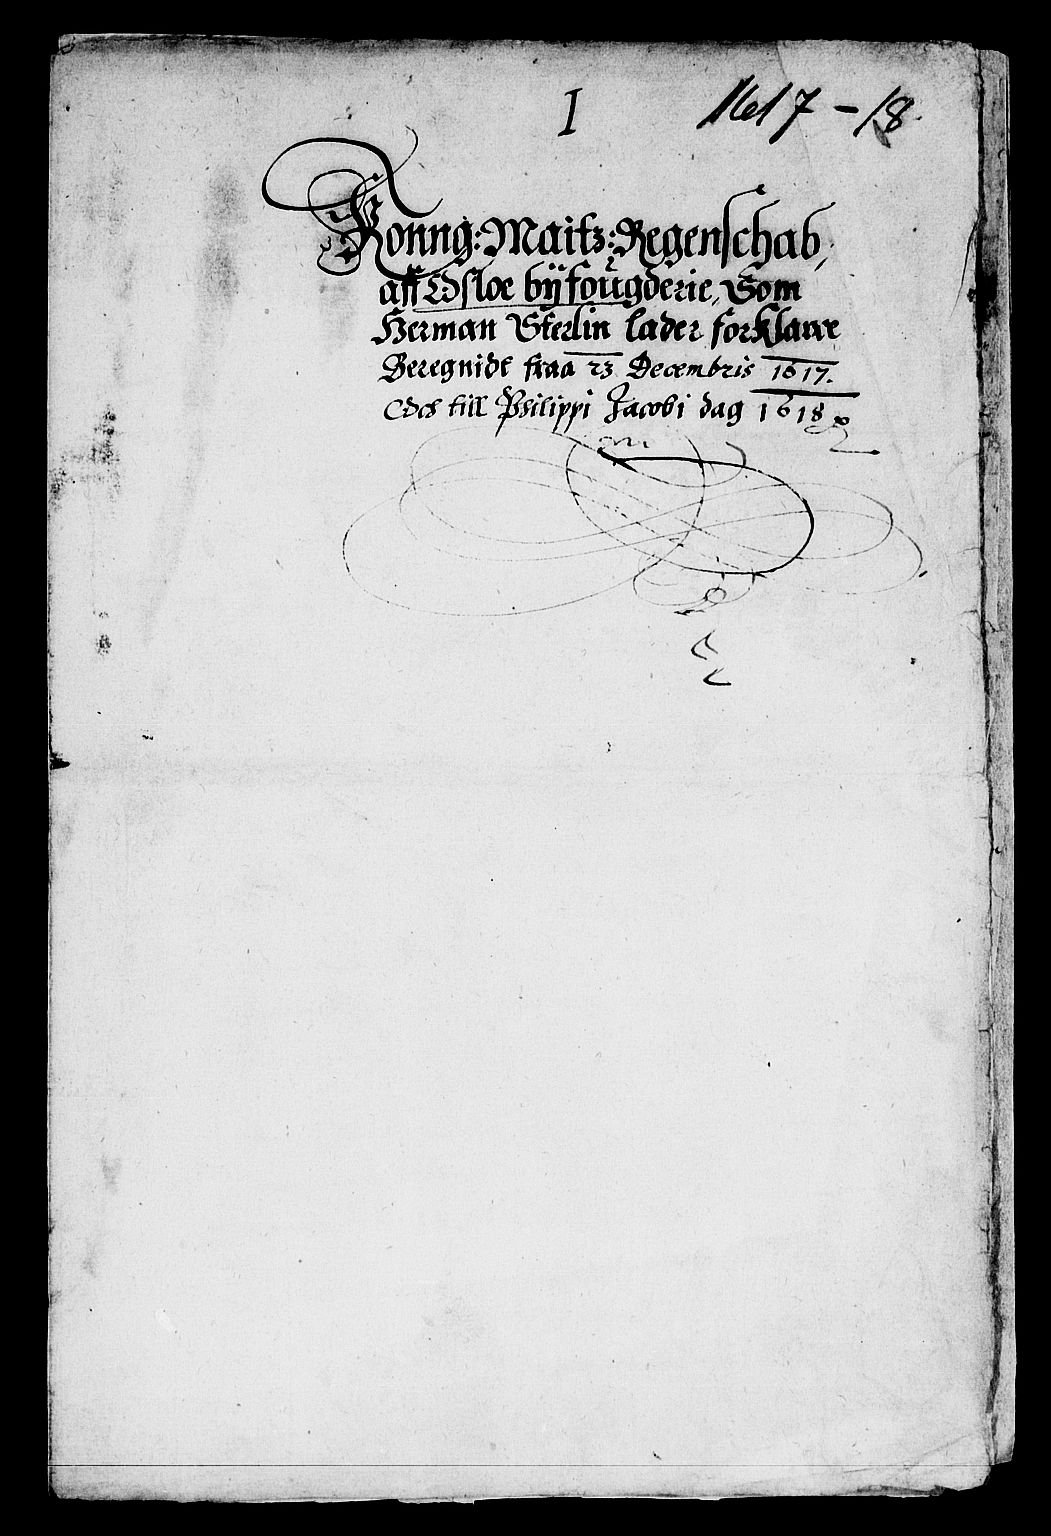 I 1617-18.
Konng: Maitz: Regenschab,
aff Odsloe bÿ fougderie, Som
Herman Sterlin lader forklare
Beregnidt fraa 23 Decembris 1617.
Och till Philippi Jacobi dag 1618